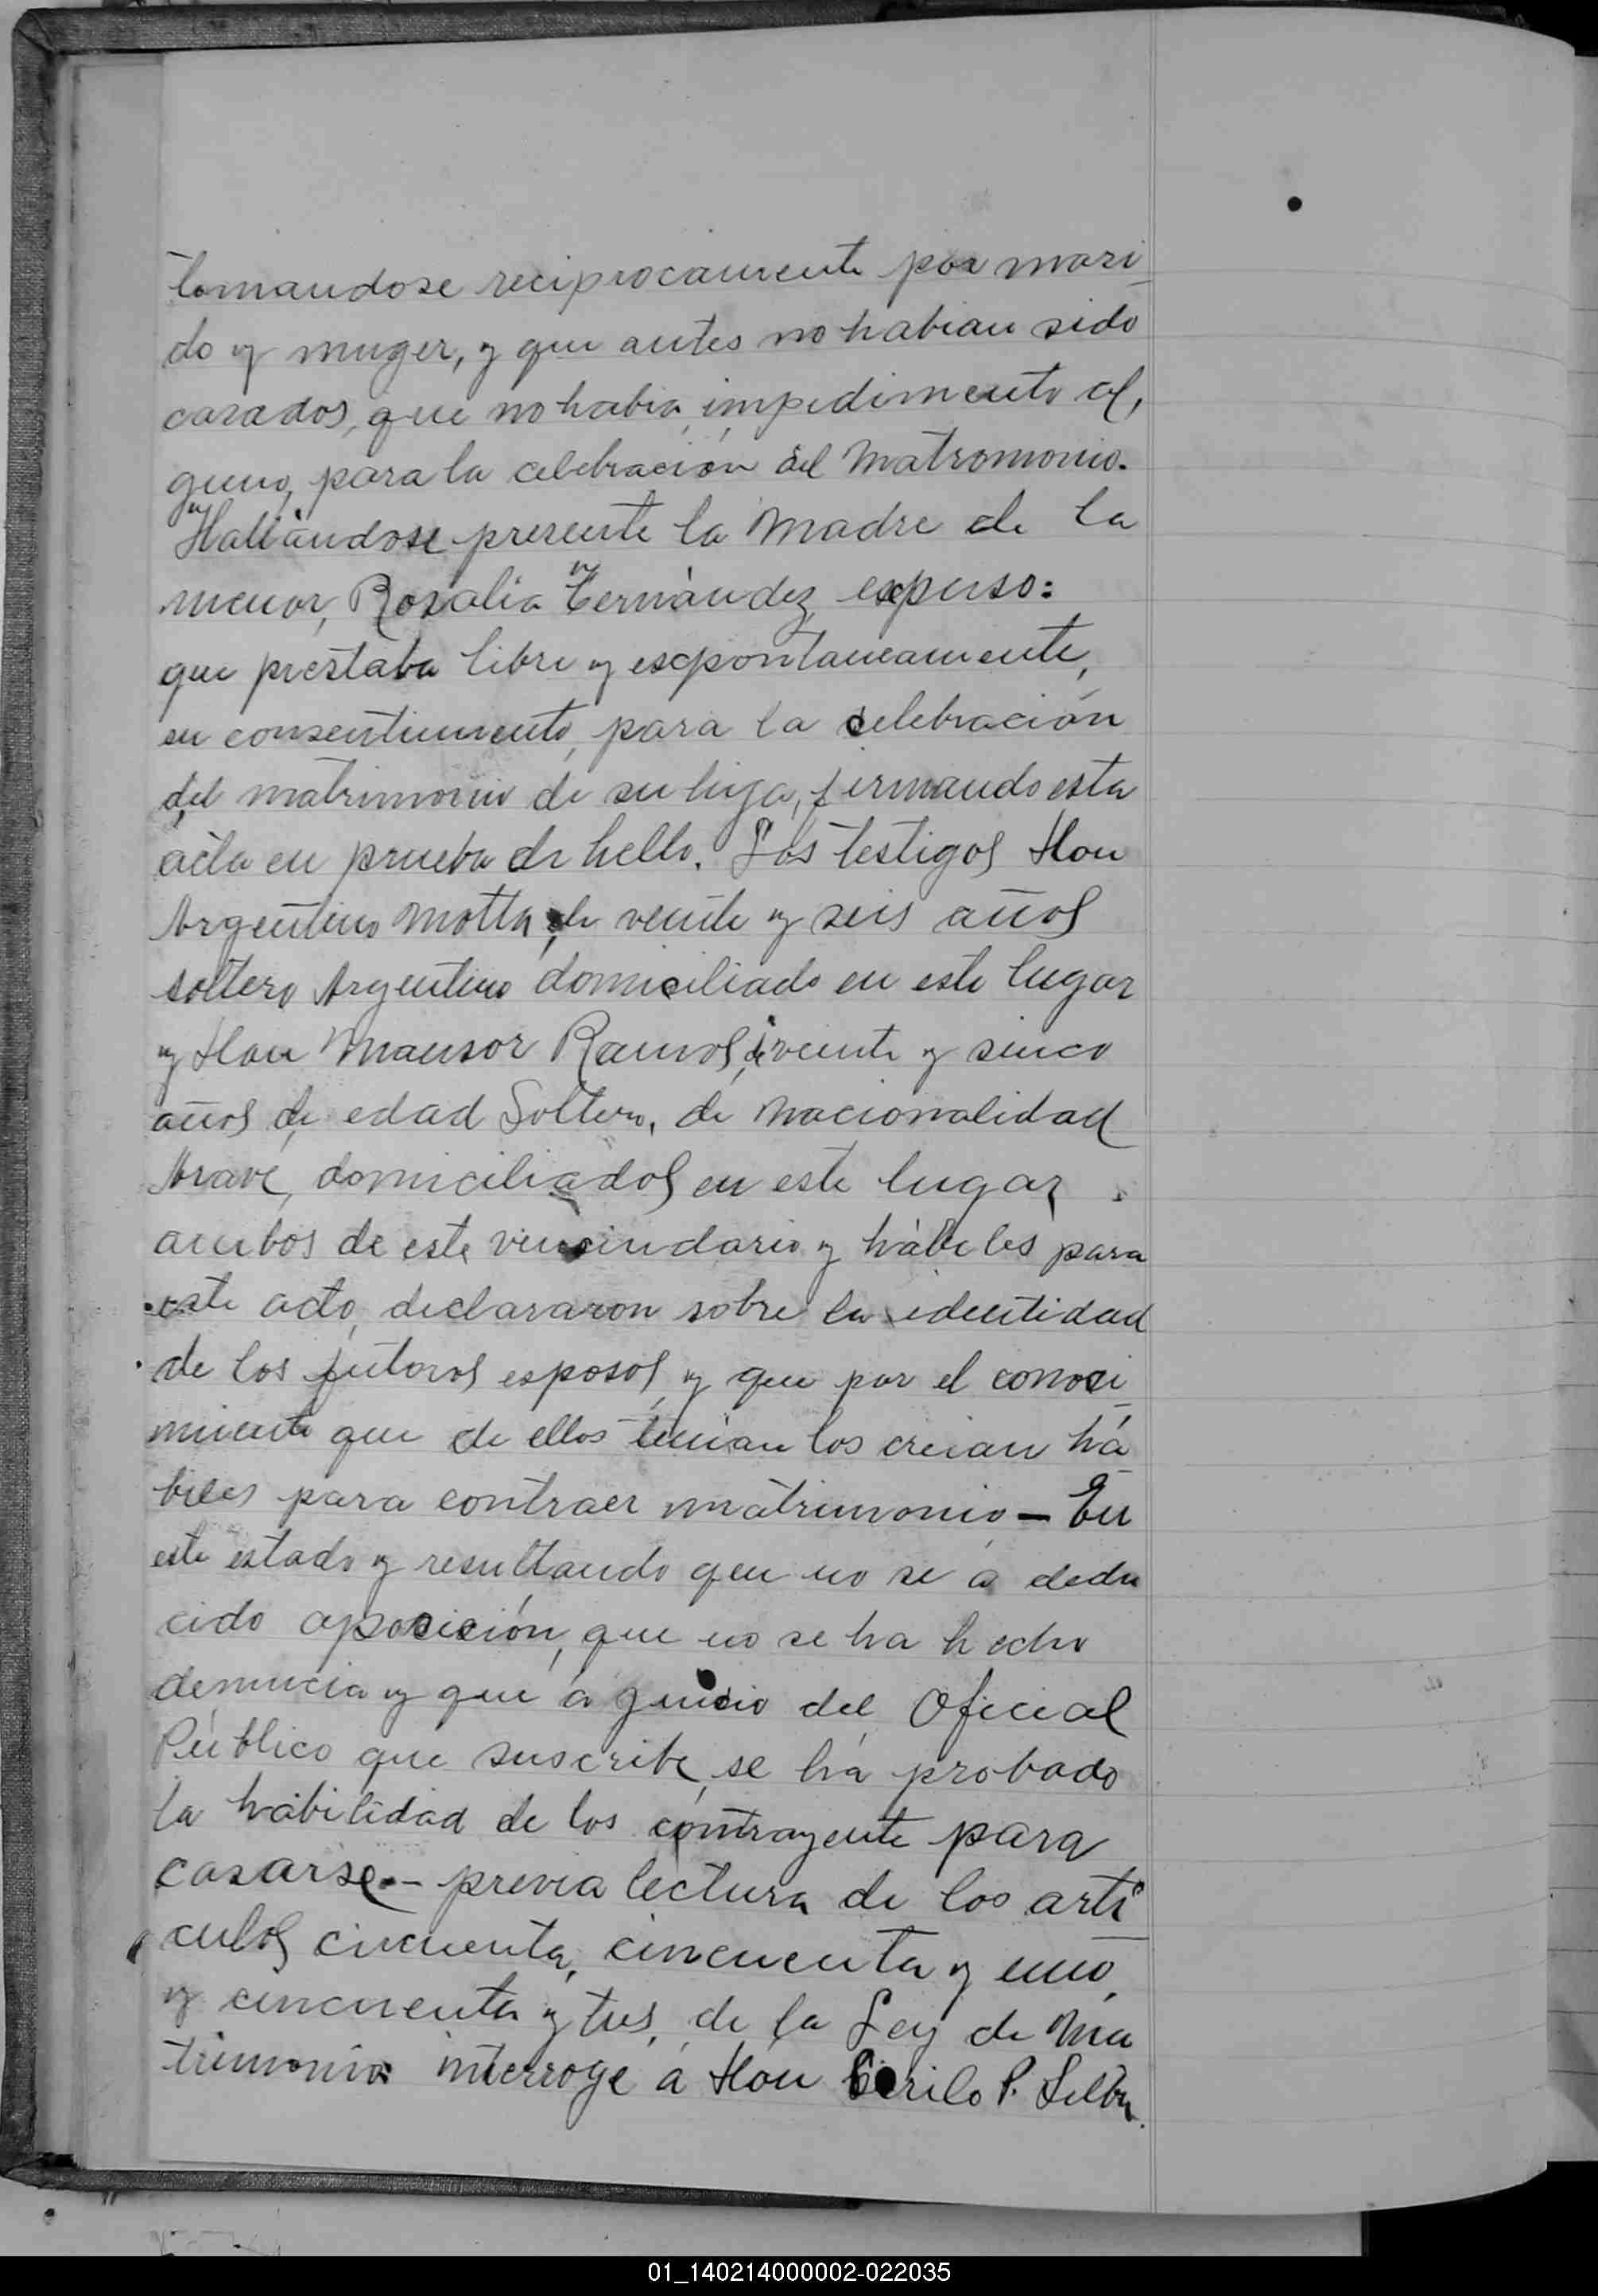 tomandose reciprocamente por mari
do y muger, y que antes no habian sido
casados, que no habia impedimento al,
guno, para la celebración del Matromonio.
Hallandose presente la Madre de la
menor, Rosalia Fernández, expuso:
que prestaba libre y esxpontaneamente,
su consentimiento, para la celebración
del matrimonio de su hija, firmando esta
acta en prueba de hello. Los testigos Hon
Argentino Motta, de veinte y seis años
soltero Argentino domiciliado en este lugar
y Hon Mansor Ramos, de veinte y sinco
años de edad Soltero, de Nacionalidad
Arave, domiciliados en este lugar
ambos de este vincindario y hábiles para
este acto, declararon sobre la identidad
de los futoros esposos, y que por el conosi
miento que de ellos tenian los creian há
biles para contraer matrimonio - En
este estado y resultando que no se á dedu
cido oposición, que no se ha hecho
denuncia y que á juicio del Oficial
Público que suscribe, se há probado
la habilidad de los contrayente para
casarse.- previa lectura de los artí
culos cincuenta, cincuenta y uno,
y cincuenta y tres, de la Ley de Ma
trimonio interroge á Hon Cirilo P.